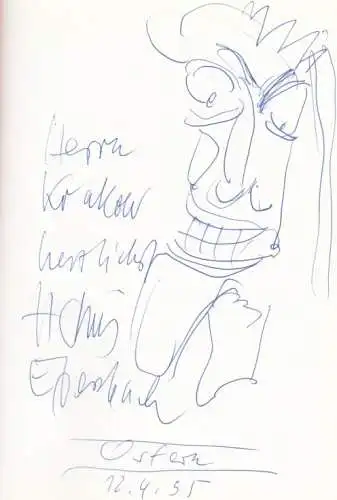 Herrn
Krakow
herzlichst
H Chris
Ebersbach
Ostern
12.4.95